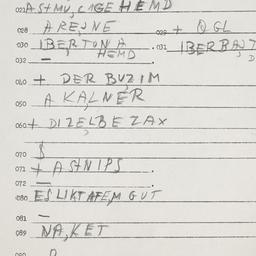 021 ASTMU, CIGE HEMD
028 AREJNE
029 + OGL
030 IBERTONA
HEMD
031 IBERBAJT
032 —
040 + DER BUZIM
050 A KALNER
060 + DIZELBE ZAX
070 $
071 + ASTNIPS
072 —
080 ESLIKTAFEM GUT
081 —
089 NA, KET
090